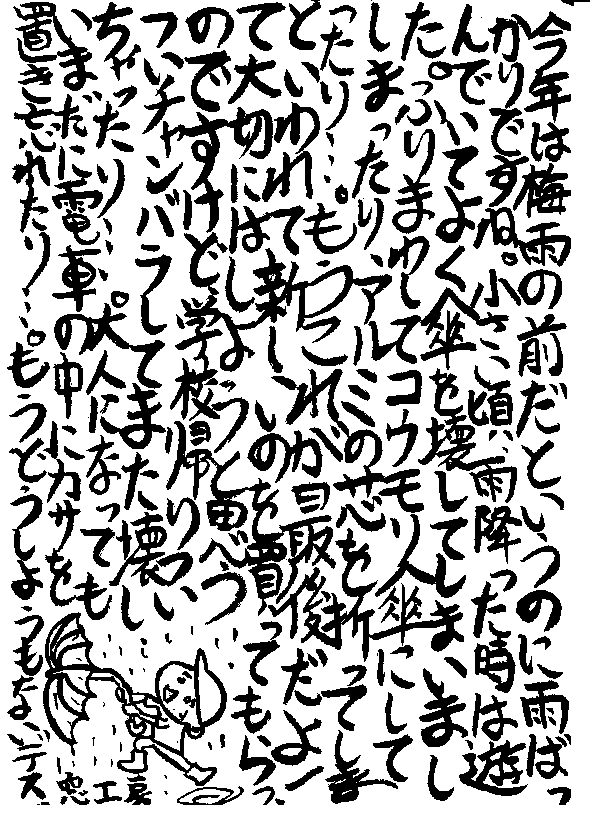 今年は梅雨の前だというのに雨ばっ
かりですね。小さい頃、雨降った時は遊
んでいてよく傘を壊してしまいまし
た。ふりまわしてコウモリ傘にして
しまったり、アルミの芯を折ってしま
ったり…。もうこれが最後だよ!
といわれて新しいのを買ってもらっ
て大切にはしようと思うづ
のですけど学校帰りつい
ついチャンバラしてまた壊し
ちゃったり…。大人になっても
いまだに電車の中にカサを
置き忘れたり…。もうどうしようもないデス
窓工房